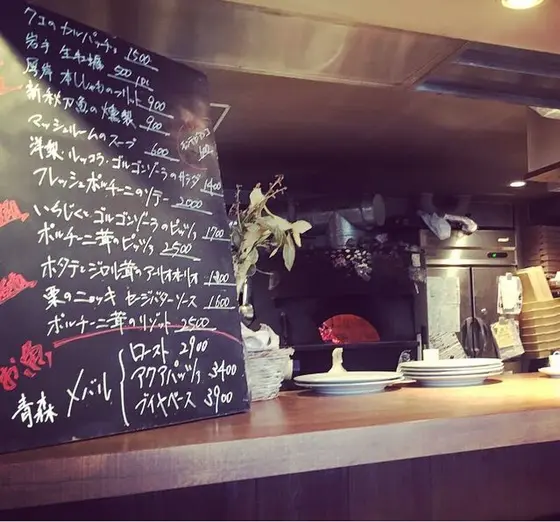 クエのカルパッチョ 1500
岩手 生牡蠣 500 1pc
厚岸 本ししゃものフリット 900
新秋刀魚の燻製 900
マッシュルームのスープ 600
洋梨・ルッコラ・ゴルゴンゾーラのサラダ 1400
フレッシュポルチーニのソテー 2000
いちじくとゴルゴンゾーラのピッツァ 1700
ポルチーニ茸のピッツァ 2500
ホタテとジロル茸のアーリオオーリオ
栗のニョッキ セージバターソース 1600
ポルチーニ茸のリゾット 2500
青森 メバル
ロースト 2900
アクアパッツァ 3400
ブイヤベース 3900